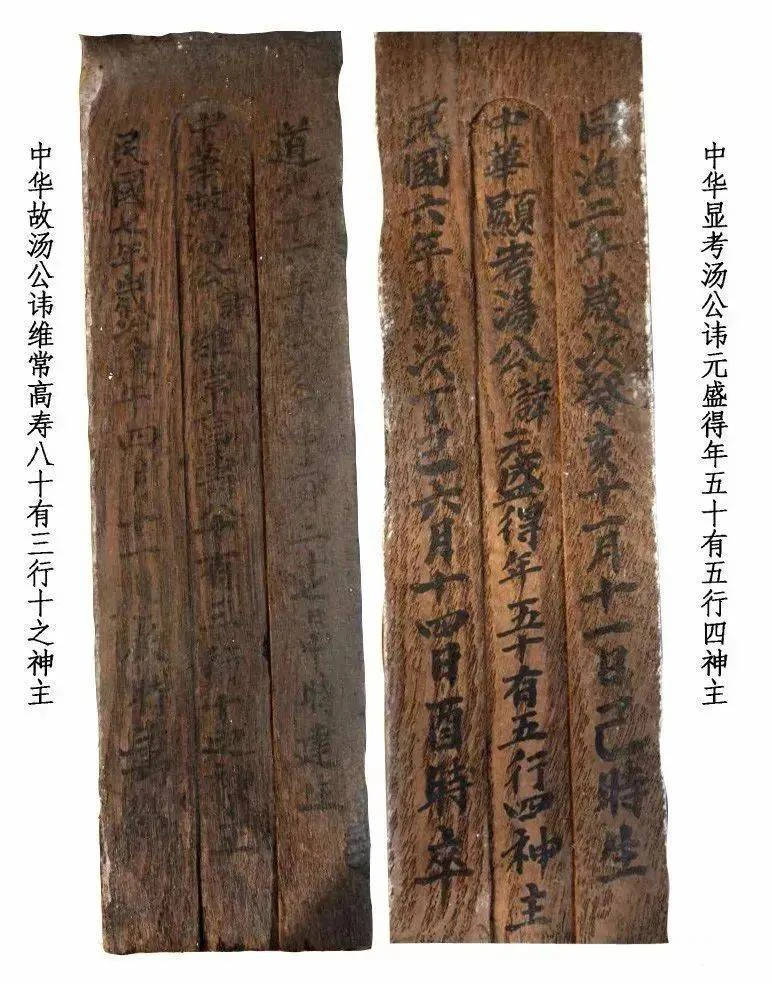 中华显考汤公讳元盛得年五十有五行四神主
同治二年歲次癸亥十一月十一日己時生
中華顯考湯公諱元盛得年五十有五行四神主
民國六年歲次丁巳六月十四日酉時卒
道光十年二十七日申時建生
中華故湯公諱維常高壽八十有三行十之神主
民國七年歲次戊午四月十一時
中华故汤公讳维常高寿八十有三行十之神主